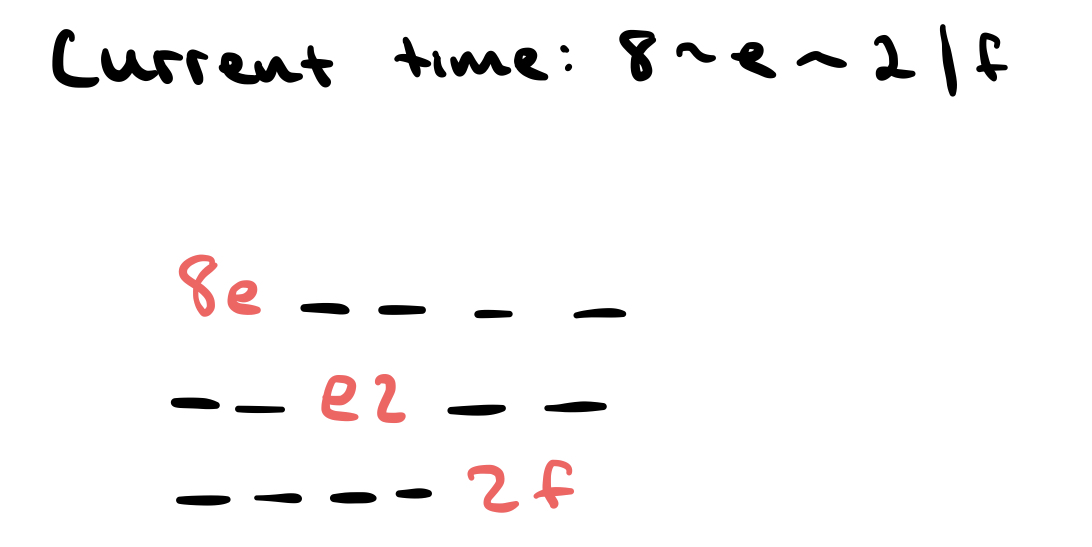 Current time: 8~e~2|f
8e _ _ _ _
_ _ e2 _ _
_ _ _ _ 2f